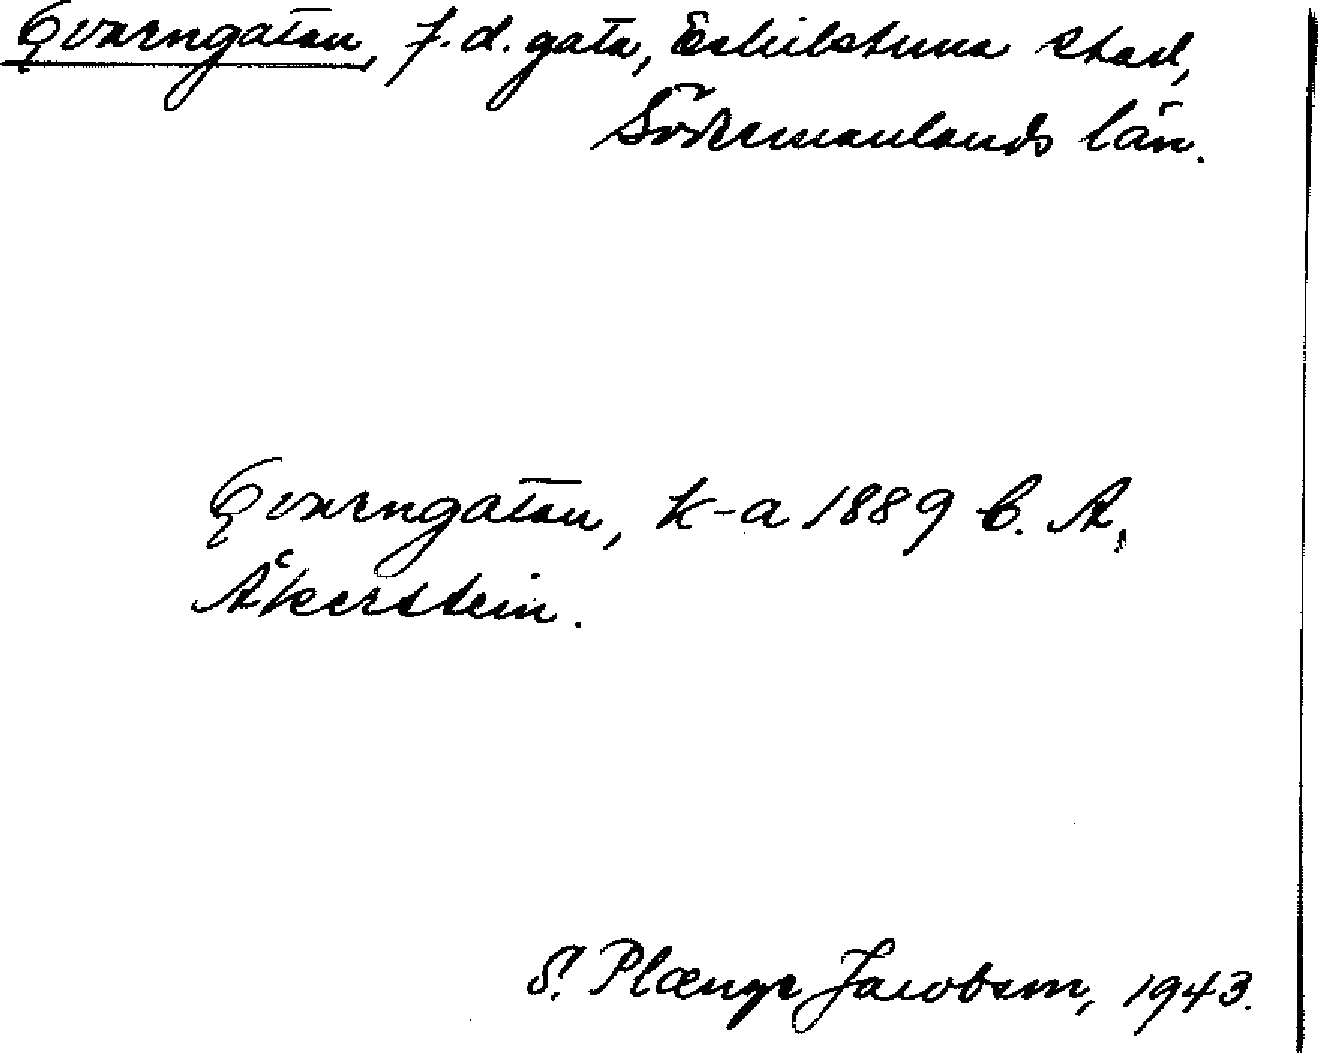 Qvarngatan, f.d. gata, Eskilstuna stad,
Södermanlands län.
Qvarngatan, k-a 1889 C. A.
Åkerstein.
S. Plænge Jacobson, 1943.